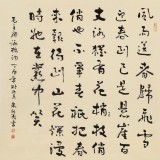 風雨送春歸飛雪
迎春到已是懸崖百
丈冰猶有花枝俏
俏也不爭春只把春
來報待到山花爛漫
時她在叢中笑